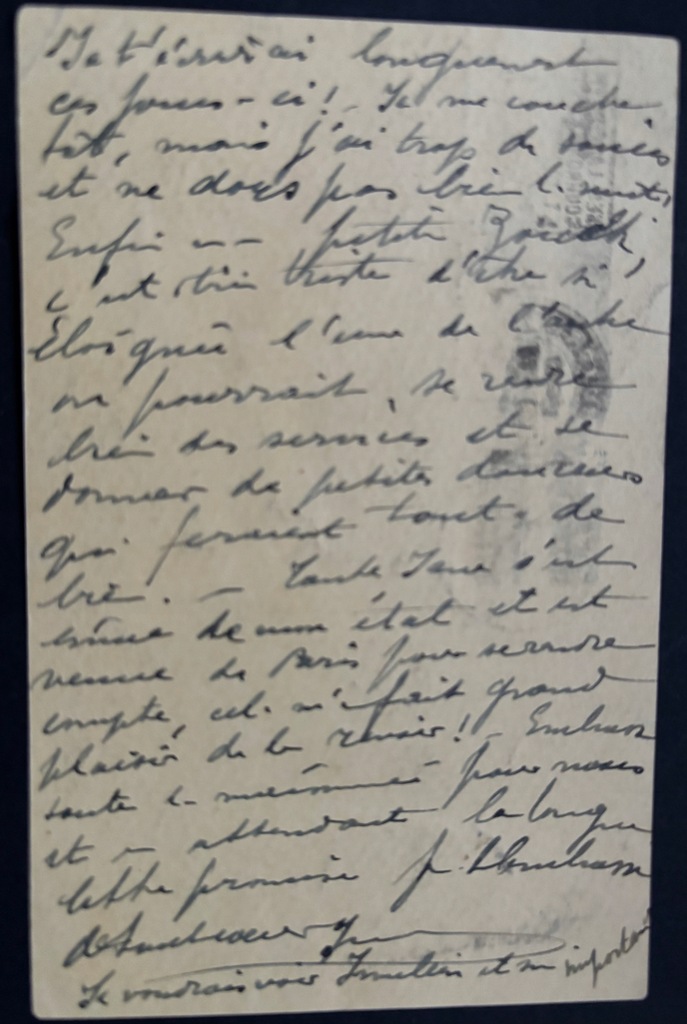 Je t'écrirai longuement
ces jours-ci! - Je me couche
tôt, mais j'ai trop de soucis
et ne dors pas bien l. nuit,
Enfin petite
c'est bien triste d'être si
Éloignée l'une de l'autre
on pourrait se rendre
bien des services et se
donner de petites douceurs
qui feraient tant de
bien. - Tante Jane s'est
émue de mon état et est
venue de Paris pour se rendre
compte, cel. m'a fait grand
plaisir de la revoir! - Embrasse
toute l. maisonnée pour nous
et en attendant la longue
lettre promise je t'embrasse
de tout coeur
Je voudrais voir et
important